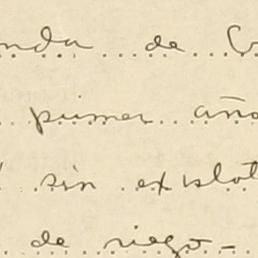 nda de C
primer año
sin existo
de riego